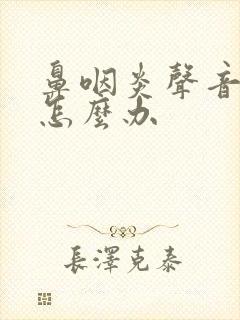 鼻咽炎聲音
怎麼办
長澤克泰